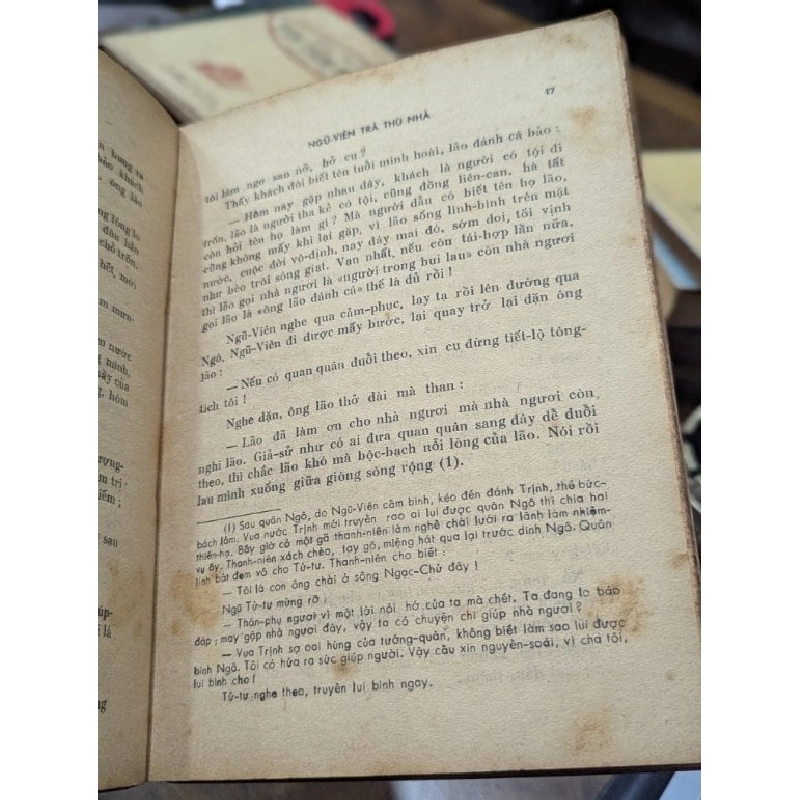 NGŨ-VIÊN TRẢ THÙ NHÀ
17
tôi làm ngơ sao nỡ, hở cụ ?
Thấy khách đòi biết tên tuổi mình hoài, lão đánh cá bảo :
— Hôm nay gặp nhau đây, khách là người có tội đi
trốn, lão là người tha kẻ có tội, cũng đồng liên-can, hà tất
còn hỏi tên họ làm gì ? Mà người dầu có biết tên họ lão,
cũng không mấy khi lại gặp, vì lão sống linh-bình trên mặt
nước, cuộc đời vô-định, nay đây mai đó, sớm doi, tối vịnh
như bèo trôi sóng giạt. Vạn nhất, nếu còn tái-hợp lần nữa,
thì lão gọi nhà ngươi là «người trong bụi lau» còn nhà ngươi
gọi lão là «ông lão đánh cá» thế là đủ rồi !
Ngũ-Viên nghe qua cảm-phục, lạy tạ rồi lên đường qua
Ngô. Ngũ-Viên đi được mấy bước, lại quay trở lại dặn ông
lão :
— Nếu có quan quân đuổi theo, xin cụ đừng tiết-lộ tông-
tích tôi !
Nghe dặn, ông lão thở dài mà than :
— Lão đã làm ơn cho nhà ngươi mà nhà ngươi còn
nghi lão. Giả-sử như có ai đưa quan quân sang đây để đuổi
theo, thì chắc lão khó mà bộc-bạch nỗi lòng của lão. Nói rồi
lao mình xuống giữa giòng sông rộng (1).
(1) Sau quân Ngô, do Ngũ-Viên cầm binh, kéo đến đánh Trịnh, thế bức-
bách lắm. Vua nước Trịnh mới truyền rao ai lui được quân Ngô thì chia hai
thiên-hạ. Bấy giờ có một gã thanh-niên làm nghề chài lưới ra lãnh lấm nhiệm-
vụ ấy. Thanh-niên xách chèo, tay gõ, miệng hát qua lại trước dinh Ngô. Quân
lính bắt đem vô cho Tử-tư. Thanh-niên cho biết :
— Tôi là con ông chài ở sông Ngạc-Chử đây !
Ngũ Tử-tư mừng rỡ :
— Thân-phụ ngươi vì một lời nói hớ của ta mà chết. Ta đang lo báo
đáp ; may gặp nhà ngươi đây, vậy ta có chuyện chi giúp nhà ngươi ?
— Vua Trịnh sợ oai hùng của tướng-quân, không biết làm sao lui được
binh Ngô. Tôi có hứa ra sức giúp người. Vậy cầu xin nguyên-soái, vì cha tôi,
lui binh cho !
Tử-tư nghe theo, truyền lui binh ngay.